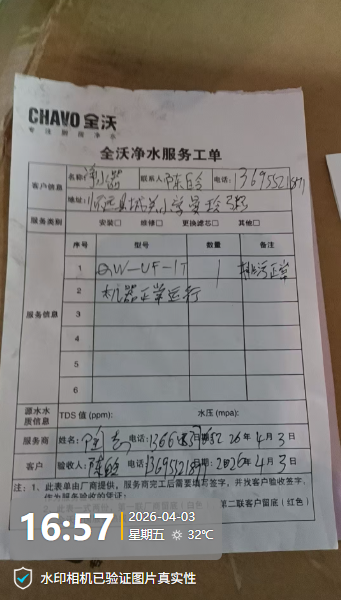 CHAVO 全沃
专注厨房净水
全沃净水服务工单
客户信息 名称: 净水器 联系人: 陈 电话:
地址: 怀远县城关小学
服务类别 安装□ 维修□ 更换滤芯□ 其他□
服务信息 序号 型号 数量 备注
1 QW-UF-1T 1 排污正常
2 机器正常运行
3
4
5
6
源水水质信息 TDS 值 (ppm): 水压 (mpa):
服务商 姓名: 电话: 26 年 4 月 3 日
客户 验收人: 陈 电话: 日期: 2026 年 4 月 3 日
注: 1、此表单由厂商提供。服务商完工后需要填写签字，并找客户验收签字，
作为服务验收的凭证;
第二联客户留底 (红色)
16:57
2026-04-03
星期五 32℃
水印相机已验证图片真实性